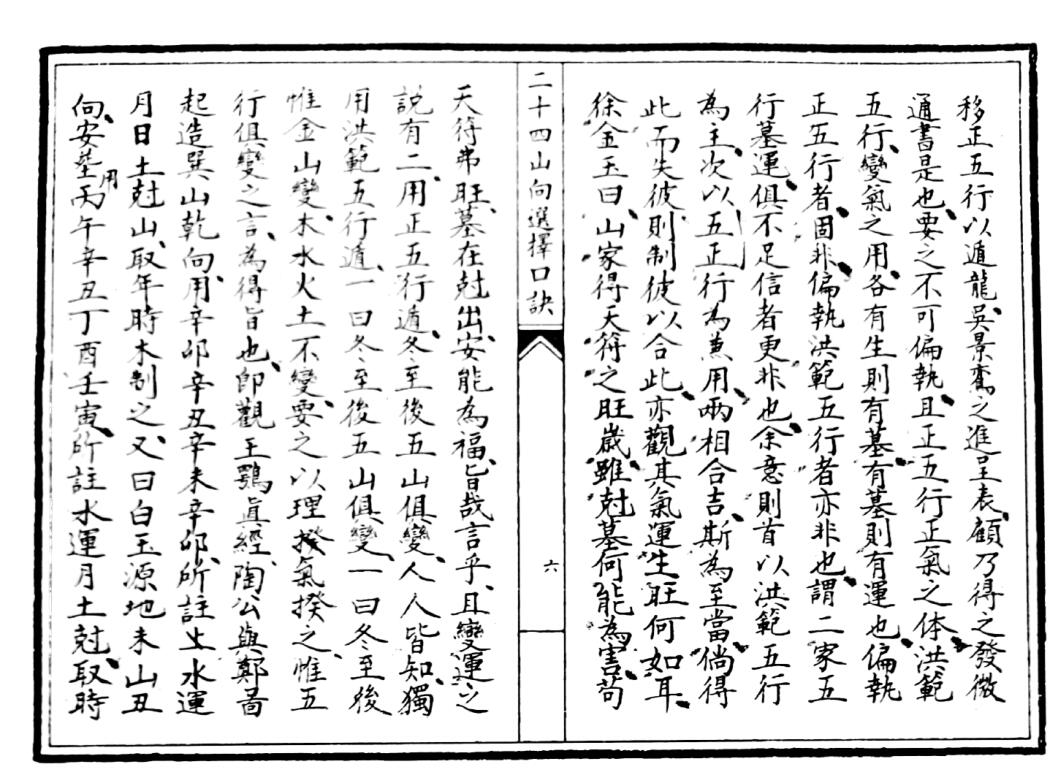 移正五行以遁龍、吳景鸞之進呈表、顧乃得之發微
通書是也、要之不可偏執、且正五行正氣之体、洪範
五行、變氣之用、各有生則有墓、有墓則有運也、偏執
正五行者、固非、偏執洪範五行者亦非也、謂二家五
行墓運、俱不足信者更非也、余意則首以洪範五行
為主、次以五正行為兼用、兩相合吉、斯為至當、倘得
此而失彼、則制彼以合此、亦觀其氣運生旺何如耳、
徐金玉曰、山家得天符之旺嵗、雖尅墓何能為害、苟
二十四山向選擇口訣
六
天符弗旺、墓在尅出、安能為福、旨哉言乎、且變運之
說有二、用正五行遁、冬至後五山俱變、人人皆知、獨
用洪範五行遁、一曰冬至後五山俱變、一曰冬至後
惟金山變、木水火土不變、要之以理揆氣揆之、惟五
行俱變之言、為得旨也、卽觀王鶚真經、陶公與鄭啚
起造巽山乾向、用辛卯辛丑辛未辛卯、所註屮水運
月日土尅山、取年時木制之、又曰白玉源地未山丑
向、安塟用丙午辛丑丁酉壬寅、所註水運月土尅、取時